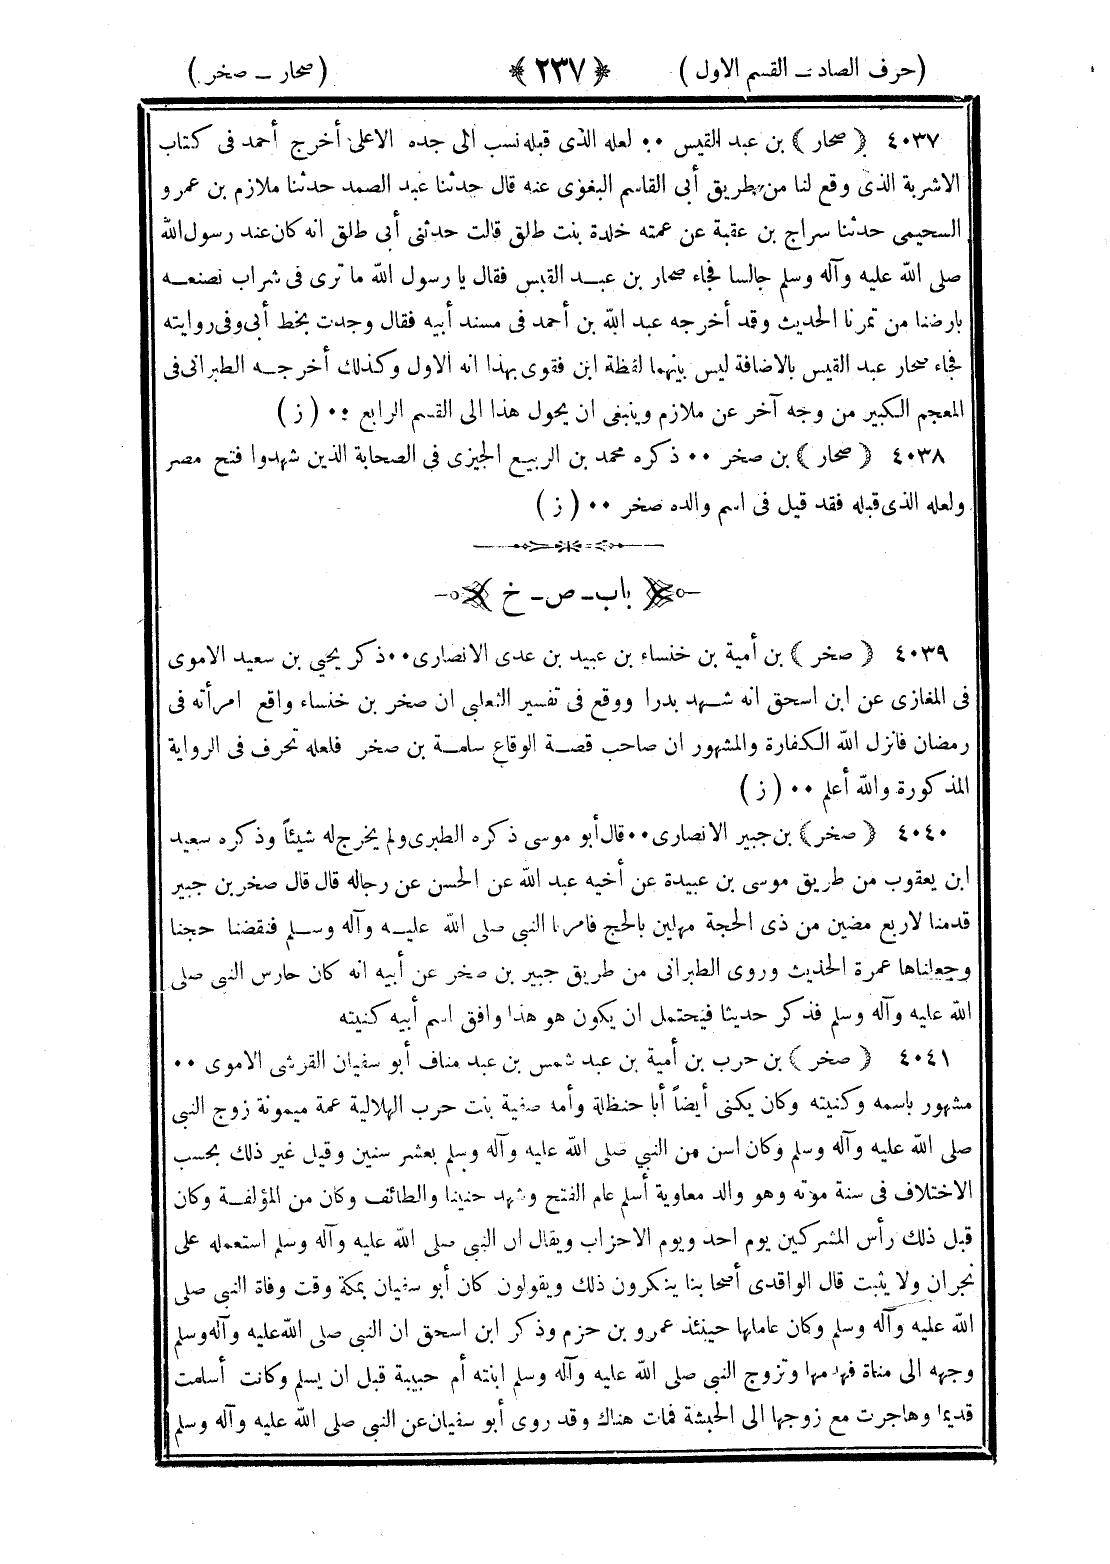 (حرف الصاد – القسم الاول) ﴿ ٢٣٧ ﴾ (صحار – صخر)
٤٠٣٧ ﴿ صحار ﴾ بن عبد القيس ٠٠ لعله الذى قبله نسب الى جده الاعلى أخرج أحمد فى كتاب
الاشربة الذى وقع لنا من طريق أبى القاسم البغوى عنه قال حدثنا عبد الصمد حدثنا ملازم بن عمرو
السحيمى حدثنا سراج بن عقبة عن عمته خلدة بنت طلق قالت حدثنى أبى طلق انه كان عند رسول الله
صلى الله عليه وآله وسلم جالسا فجاء صحار بن عبد القيس فقال يا رسول الله ما ترى فى شراب نصنعه
بارضنا من تمرنا الحديث وقد أخرجه عبد الله بن أحمد فى مسند أبيه فقال وجدت بخط أبى وفى روايته
فجاء صحار عبد القيس بالاضافة ليس بينهما لفظة ابن فقوى بهذا انه الاول وكذلك أخرجه الطبرانى فى
المعجم الكبير من وجه آخر عن ملازم وينبغى ان يحول هذا الى القسم الرابع ٠٠ (ز)
٤٠٣٨ ﴿ صحار ﴾ بن صخر ٠٠ ذكره محمد بن الربيع الجيزى فى الصحابة الذين شهدوا فتح مصر
ولعله الذى قبله فقد قيل فى اسم والده صخر ٠٠ (ز)
باب – ص – خ
٤٠٣٩ ﴿ صخر ﴾ بن أمية بن خنساء بن عبيد بن عدى الانصارى ٠٠ ذكر يحيى بن سعيد الاموى
فى المغازى عن ابن اسحق انه شهد بدرا ووقع فى تفسير الثعلبى ان صخر بن خنساء واقع امرأته فى
رمضان فانزل الله الكفارة والمشهور ان صاحب قصة الوقاع سلمة بن صخر فلعله تحرف فى الرواية
المذكورة والله أعلم ٠٠ (ز)
٤٠٤٠ ﴿ صخر ﴾ بن جبير الانصارى ٠٠ قال أبو موسى ذكره الطبرى ولم يخرج له شيئاً وذكره سعيد
ابن يعقوب من طريق موسى بن عبيدة عن أخيه عبد الله عن الحسن عن رجاله قال قال صخر بن جبير
قدمنا لاربع مضين من ذى الحجة مهلين بالحج فامرنا النبى صلى الله عليه وآله وسلم فنقضنا حجنا
وجعلناها عمرة الحديث وروى الطبرانى من طريق جبير بن صخر عن أبيه انه كان حارس النبى صلى
الله عليه وآله وسلم فذكر حديثا فيحتمل ان يكون هو هذا وافق اسم أبيه كنيته
٤٠٤١ ﴿ صخر ﴾ بن حرب بن أمية بن عبد شمس بن عبد مناف أبو سفيان القرشى الاموى ٠٠
مشهور باسمه وكنيته وكان يكنى أيضاً أبا حنظلة وأمه صفية بنت حرب الهلالية عمة ميمونة زوج النبى
صلى الله عليه وآله وسلم وكان اسن من النبى صلى الله عليه وآله وسلم بعشر سنين وقيل غير ذلك بحسب
الاختلاف فى سنة موته وهو والد معاوية أسلم عام الفتح وشهد حنينا والطائف وكان من المؤلفة وكان
قبل ذلك رأس المشركين يوم احد ويوم الاحزاب ويقال ان النبى صلى الله عليه وآله وسلم استعمله على
نجران ولا يثبت قال الواقدى أصحابنا ينكرون ذلك ويقولون كان أبو سفيان بمكة وقت وفاة النبى صلى
الله عليه وآله وسلم وكان عاملها حينئذ عمرو بن حزم وذكر ابن اسحق ان النبى صلى الله عليه وآله وسلم
وجهه الى مناة فهدمها وتزوج النبى صلى الله عليه وآله وسلم ابنته أم حبيبة قبل ان يسلم وكانت أسلمت
قديما وهاجرت مع زوجها الى الحبشة فمات هناك وقد روى أبو سفيان عن النبى صلى الله عليه وآله وسلم